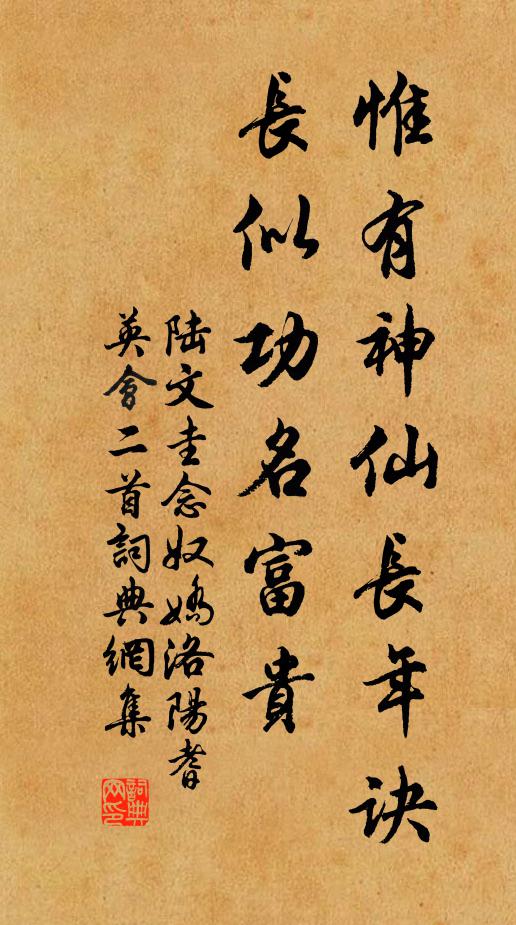 惟有神仙長年訣
長似功名富貴
陆文圭念奴嬌洛陽耆
英會二首詞典網集
詞典
网印